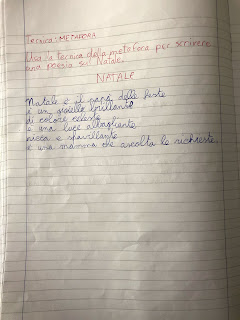 Tecnica: METAFORA
Usa la tecnica della metafora per scrivere
una poesia sul Natale.
NATALE
Natale è il papà delle feste
è un gioiello brillante
di colore celeste
è una luce abbagliante
ricca e sfavillante
è una mamma che ascolta le richieste.